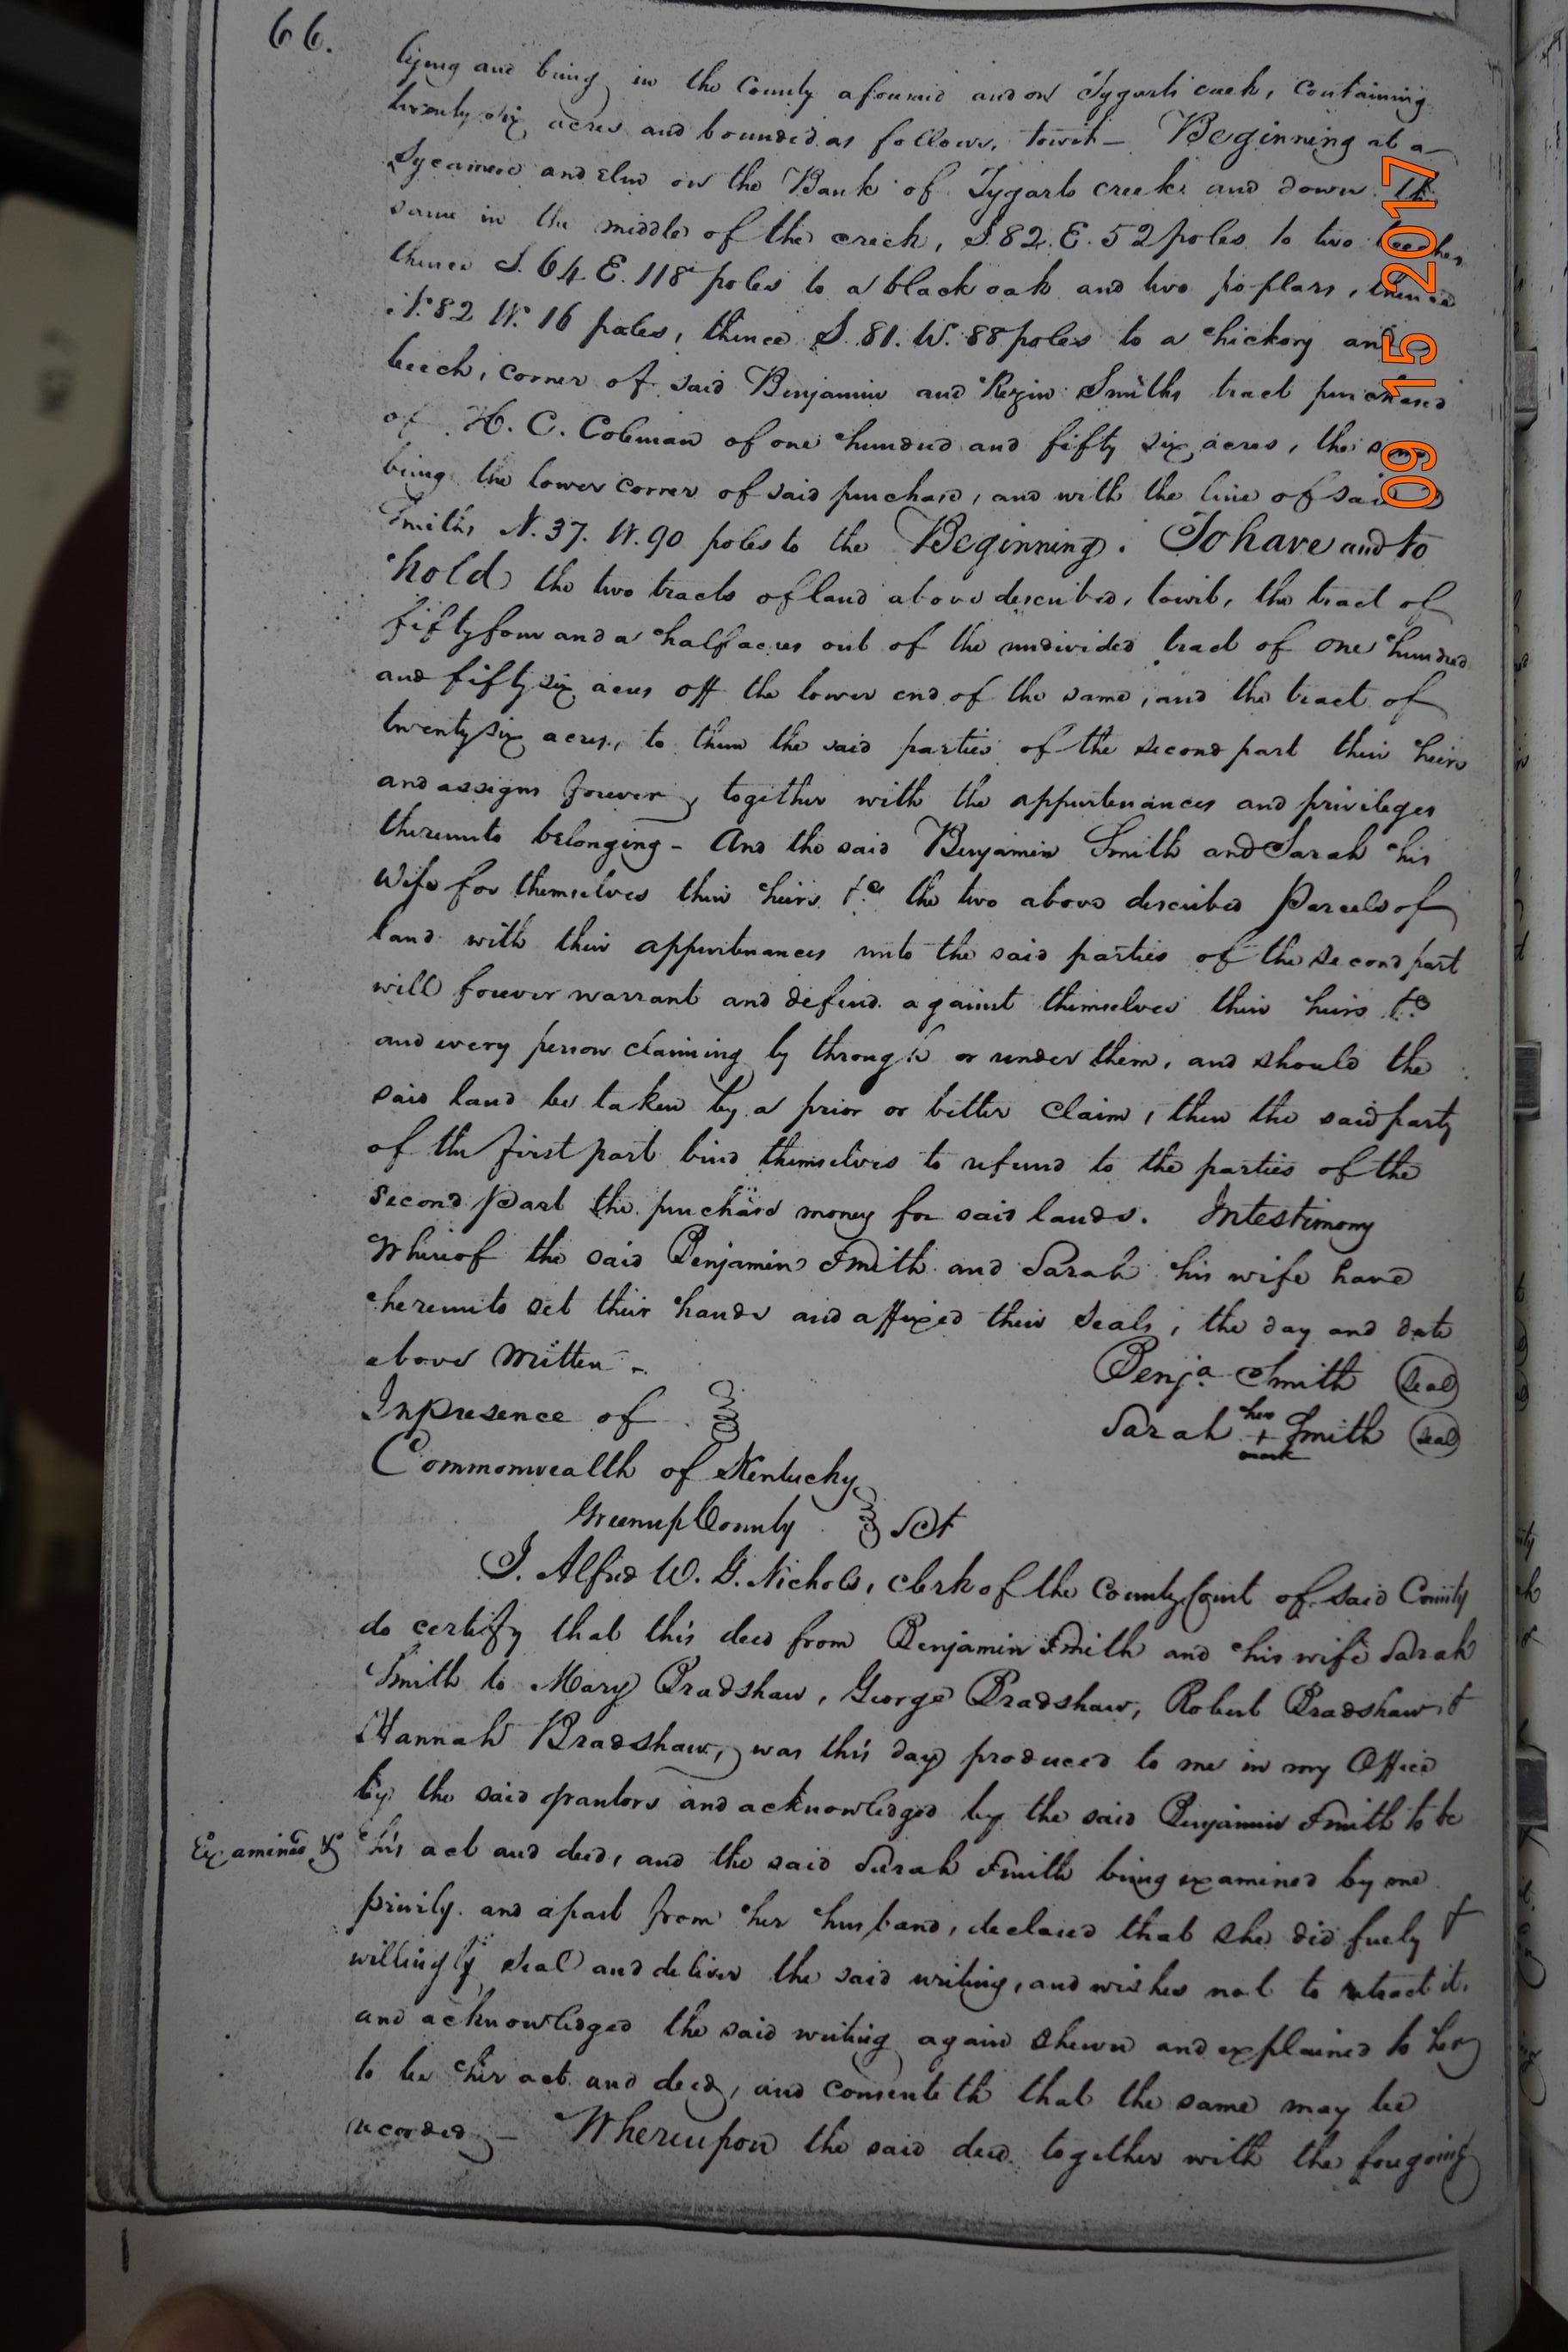 66.
lying and being in the County aforesaid and on Tygarts creek, containing
twenty six acres and bounded as follows, towit – Beginning at a
Sycamore and Elm on the Bank of Tygarts creek and down the
same in the middle of the creek, S. 82. E. 52 poles to two beeches
thence S. 64 E. 118 poles to a black oak and two poplars, thence
N. 82 W. 16 poles, thence S. 81. W. 88 poles to a hickory and
beech, corner of said Benjamin and Rezin Smiths tract purchased
of H. C. Coleman of one hundred and fifty six acres, the same
being the lower corner of said purchase, and with the line of said
Smiths N. 37. W. 90 poles to the Beginning. To have and to
hold the two tracts of land above described, towit, the tract of
fifty four and a half acres out of the undivided tract of one hundred
and fifty six acres off the lower end of the same, and the tract of
twenty six acres, to them the said parties of the second part their heirs
and assigns forever, together with the appurtenances and privileges
thereunto belonging – And the said Benjamin Smith and Sarah his
Wife for themselves their heirs &c the two above described Parcels of
land with their appurtenances unto the said parties of the second part
will forever warrant and defend against themselves their heirs &c
and every person claiming by through or under them, and should the
said land be taken by a prior or better claim, then the said party
of the first part bind themselves to refund to the parties of the
second Part the purchase money for said lands. In testimony
Whereof the said Benjamin Smith and Sarah his wife have
hereunto set their hands and affixed their Seals, the day and date
above Written –
Benja Smith Seal
In presence of
Sarah her + mark Smith Seal
Commonwealth of Kentucky
Greenup County Sct
I. Alfred W. G. Nichols, clerk of the County Court of said County
do certify that this deed from Benjamin Smith and his wife Sarah
Smith to Mary Bradshaw, George Bradshaw, Robert Bradshaw &
Hannah Bradshaw, was this day produced to me in my Office
by the said grantors and acknowledged by the said Benjamin Smith to be
Examined &
his act and deed, and the said Sarah Smith being examined by me
privily and apart from her husband, declared that she did freely &
willingly seal and deliver the said writing, and wishes not to retract it,
and acknowledged the said writing again shewn and explained to her
to be her act and deed, and consenteth that the same may be
recorded – Whereupon the said deed together with the foregoing
09 15 2017